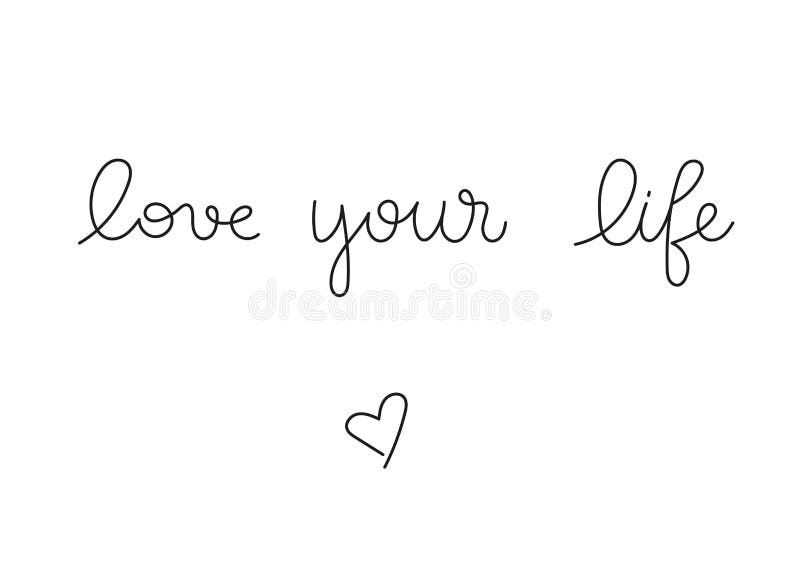 love your life
dreamstime.com